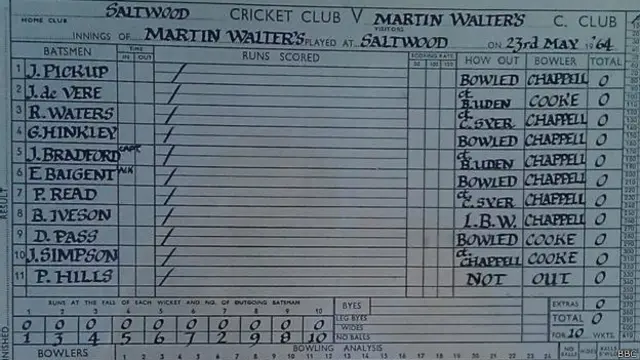 HOME CLUB SALTWOOD CRICKET CLUB V MARTIN WALTER'S C. CLUB
VISITORS
INNINGS OF MARTIN WALTER'S PLAYED AT SALTWOOD ON 23rd MAY 1964
BATSMEN TIME IN OUT RUNS SCORED SCORING RATE 50 100 150 HOW OUT BOWLER TOTAL
1 J. PICKUP / BOWLED CHAPPELL 0
2 J. de VERE / ct B. UDEN COOKE 0
3 R. WATERS / ct C. SYER CHAPPELL 0
4 G. HINKLEY / BOWLED CHAPPELL 0
5 J. BRADFORD CAPT. / ct B. UDEN CHAPPELL 0
6 E BAIGENT WK / BOWLED CHAPPELL 0
7 P. READ / ct C. SYER CHAPPELL 0
8 B. IVESON / L.B.W. CHAPPELL 0
9 D. PASS / BOWLED COOKE 0
10 J. SIMPSON / ct CHAPPELL COOKE 0
11 P. HILLS / NOT OUT 0
RUNS AT THE FALL OF EACH WICKET AND NO. OF OUTGOING BATSMAN
1 2 3 4 5 6 7 8 9 10
0 0 0 0 0 0 0 0 0 0
1 3 4 5 6 7 2 9 8 10
BYES
LEG BYES
WIDES
NO BALLS
EXTRAS 0
TOTAL 0
FOR 10 WKTS.
BOWLERS BOWLING ANALYSIS
1 2 3 4 5 6 7 8 9 10 11 12 13 14 15 16
NO BALLS WIDES
RESULT
FINISHED
BBC